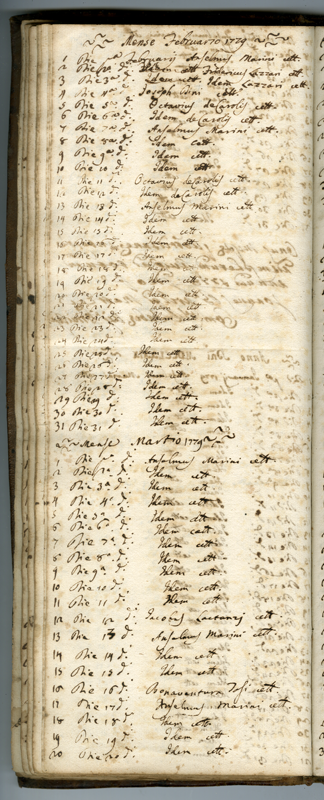 Mense Februario 1779
1 Die pma Februarij Anselmus Marini cett.
2 Die 2a d. Idem cett. Federicus Lazzari cett.
3 Die 3a d. Idem cett. Idem Lazzari cett.
4 Die 4a d. Joseph cett.
5 Die 5a d. Octavius deCarolis cett.
6 Die 6a d. Idem deCarolis cett.
7 Die 7a d. Anselmus Marini cett.
8 Die 8a d. Idem cett.
9 Die 9a d. Idem cett.
10 Die 10 d. Idem cett.
11 Die 11 d. Octavius deCarolis cett.
12 Die 12 d. Idem deCarolis cett.
13 Die 13 d. Anselmus Marini cett.
14 Die 14 d. Idem cett.
15 Die 15 d. Idem cett.
16 Die 16 d. Idem cett.
17 Die 17 d. Idem cett.
18 Die 18 d. Idem cett.
19 Die 19 d. Idem cett.
20 Die 20 d. Idem cett.
21 Die 21 d. Idem cett.
22 Die 22 d. Idem cett.
23 Die 23 d. Idem cett.
24 Die 24 d. Idem cett.
25 Die 25 d. Idem cett.
26 Die 26 d. Idem cett.
27 Die 27 d. Idem cett.
28 Die 28 d. Idem cett.
29 Die 29 d. Idem cett.
30 Die 30 d. Idem cett.
31 Die 31 d. Idem cett.
Mense Martio 1779
1 Die pa d. Anselmus Marini cett.
2 Die 2a d. Idem cett.
3 Die 3a d. Idem cett.
4 Die 4a d. Idem cett.
5 Die 5a d. Idem cett.
6 Die 6a d. Idem cett.
7 Die 7a d. Idem cett.
8 Die 8a d. Idem cett.
9 Die 9a d. Idem cett.
10 Die 10 d. Idem cett.
11 Die 11 d. Idem cett.
12 Die 12 d. Jacobus cett.
13 Die 13 d. Anselmus Marini cett.
14 Die 14 d. Idem cett.
15 Die 15 d. Idem cett.
16 Die 16 d. Bonaventura Tosi cett.
17 Die 17 d. Anselmus Marini cett.
18 Die 18 d. Idem cett.
19 Die 19 d. Idem cett.
20 Die 20 d. Idem cett.